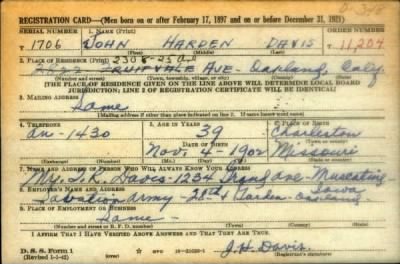 REGISTRATION CARD—(Men born on or after February 17, 1897 and on or before December 31, 1921)
SERIAL NUMBER 1. NAME (Print) ORDER NUMBER
T 1706 JOHN HARDEN DAVIS T 11,204
(First) (Middle) (Last)
2. PLACE OF RESIDENCE (Print) 2308-25 ave
FRUITVALE AVE- Oakland, Calif.
(Number and street) (Town, township, village, or city) (County) (State)
[THE PLACE OF RESIDENCE GIVEN ON THE LINE ABOVE WILL DETERMINE LOCAL BOARD
JURISDICTION; LINE 2 OF REGISTRATION CERTIFICATE WILL BE IDENTICAL]
3. MAILING ADDRESS
Same
[Mailing address if other than place indicated on line 2. If same insert word same]
4. TELEPHONE 5. AGE IN YEARS 6. PLACE OF BIRTH
an-1430 39 Charleston
DATE OF BIRTH (Town or county)
Nov. 4- 1902 Missouri
(Mo.) (Day) (Yr.) (State or country)
7. NAME AND ADDRESS OF PERSON WHO WILL ALWAYS KNOW YOUR ADDRESS
1234 Ave- Muscatine
Iowa
8. EMPLOYER'S NAME AND ADDRESS
Salvation Army- 20th & Oakland
9. PLACE OF EMPLOYMENT OR BUSINESS
Same-
(Number and street or R. F. D. number) (Town) (County) (State)
I AFFIRM THAT I HAVE VERIFIED ABOVE ANSWERS AND THAT THEY ARE TRUE.
D. S. S. Form 1
(Revised 1-1-42) (over) J.H. Davis.
(Registrant's signature)